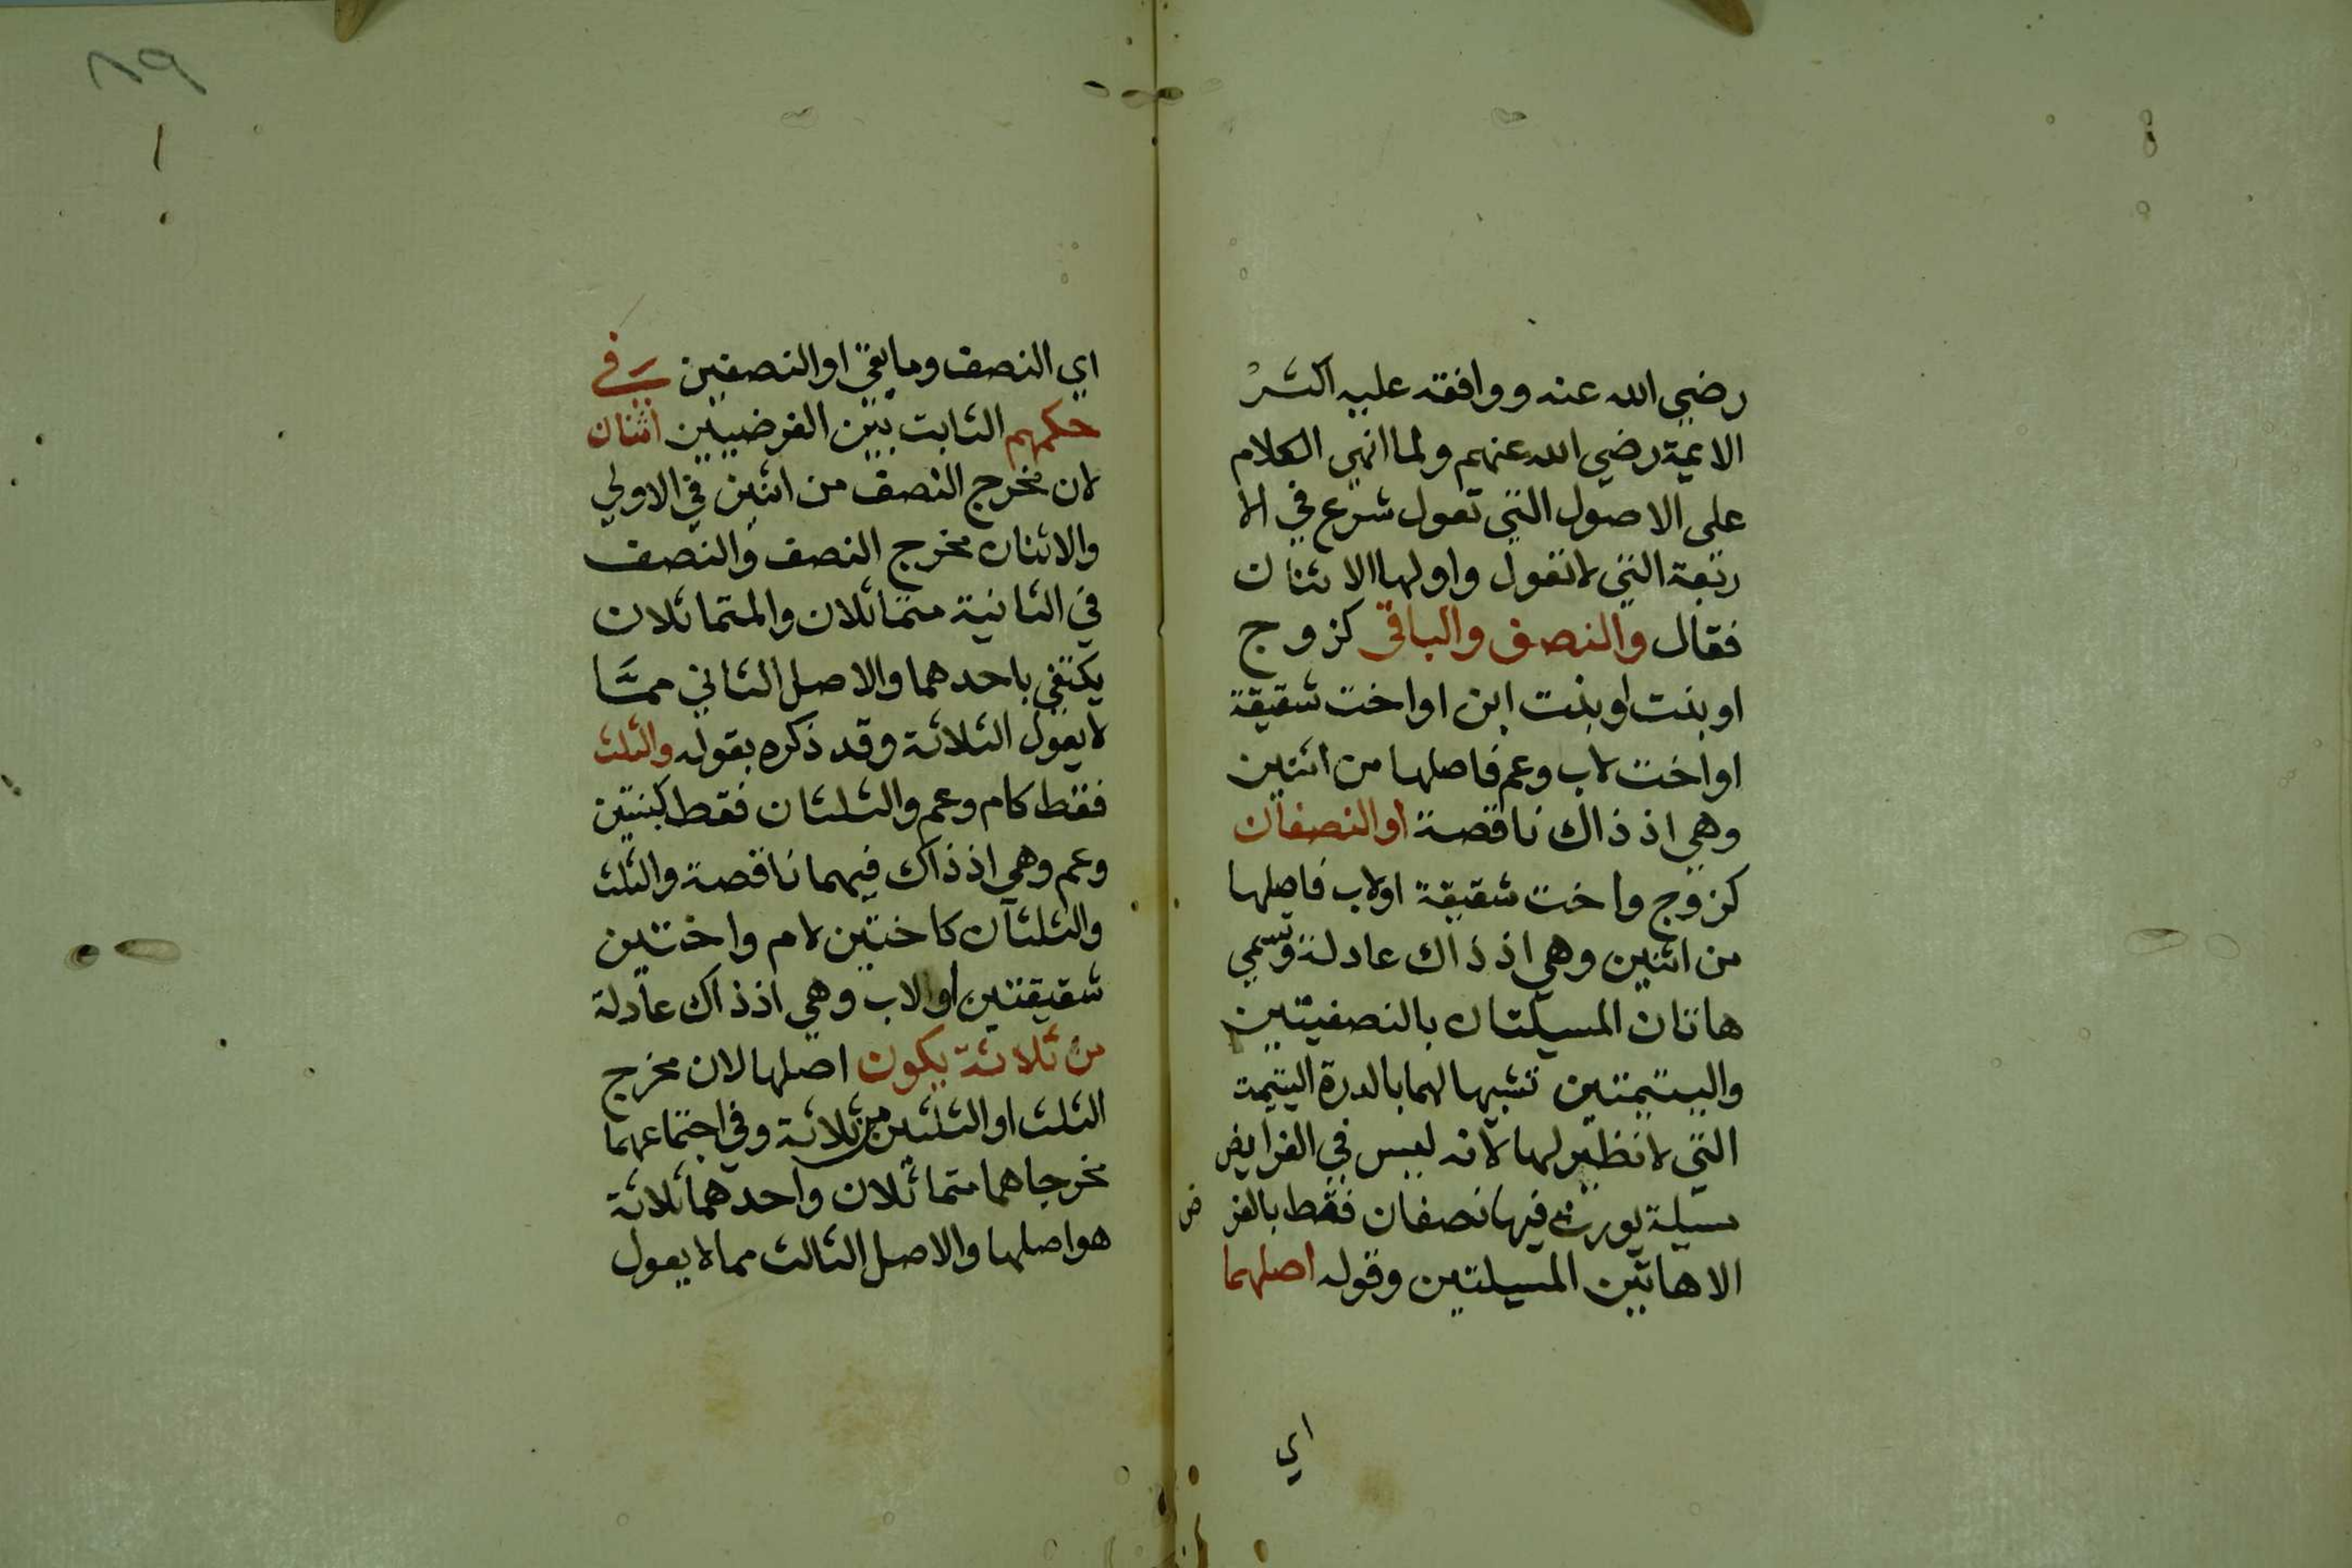 رضي الله عنه ووافقه عليه اكثر
الايمة رضي الله عنهم ولما انهى الكلام
على الاصول التي تعول شرع في الا
ربعة التي لا تعول واولها الاثنان
فقال والنصف والباقي كزوج
او بنت او بنت ابن او اخت شقيقة
او اخت لاب وعم فاصلها من اثنين
وهي اذ ذاك ناقصة او النصفان
كزوج واخت شقيقة او لاب فاصلها
من اثنين وهي اذ ذاك عادلة وتسمي
هاتان المسيلتان بالنصفيتين
واليتيمتين تشبيها لهما بالدرة اليتيمة
التي لا نظير لها لانه ليس في الفرايض
مسيلة يورث فيها نصفان فقط بالفرض
الا هاتين المسيلتين وقوله اصلهما
اي
٨٩
اي النصف وما بقي او النصفين في
حكمهم الثابت بين الفرضيين اثنان
لان مخرج النصف من اثنين في الاولي
والاثنان مخرج النصف والنصف
في الثانية متماثلان والمتماثلان
يكتفي باحدهما والاصل الثاني مما
لا يعول الثلاثة وقد ذكره بقوله والثلث
فقط كام وعم والثلثان فقط كبنتين
وعم وهي اذ ذاك فيهما ناقصة والثلث
والثلثان كاختين لام واختين
شقيقتين او لاب وهي اذ ذاك عادلة
من ثلاثة يكون اصلها لان مخرج
الثلث او الثلثين من ثلاثة وفي اجتماعهما
مخرجاهما متماثلان واحدهما ثلاثة
هو اصلها والاصل الثالث مما لا يعول